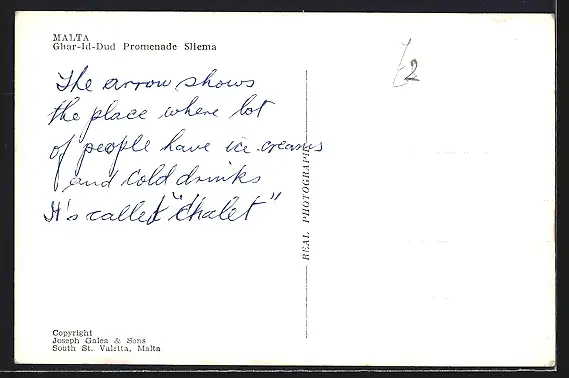 MALTA
Ghar-id-Dud Promenade Sliema
The arrow shows
the place where lot
of people have ice creams
and cold drinks
It's called "Chalet"
REAL PHOTOGRAPH
£2
Copyright
Joseph Galea & Sons
South St. Valetta, Malta